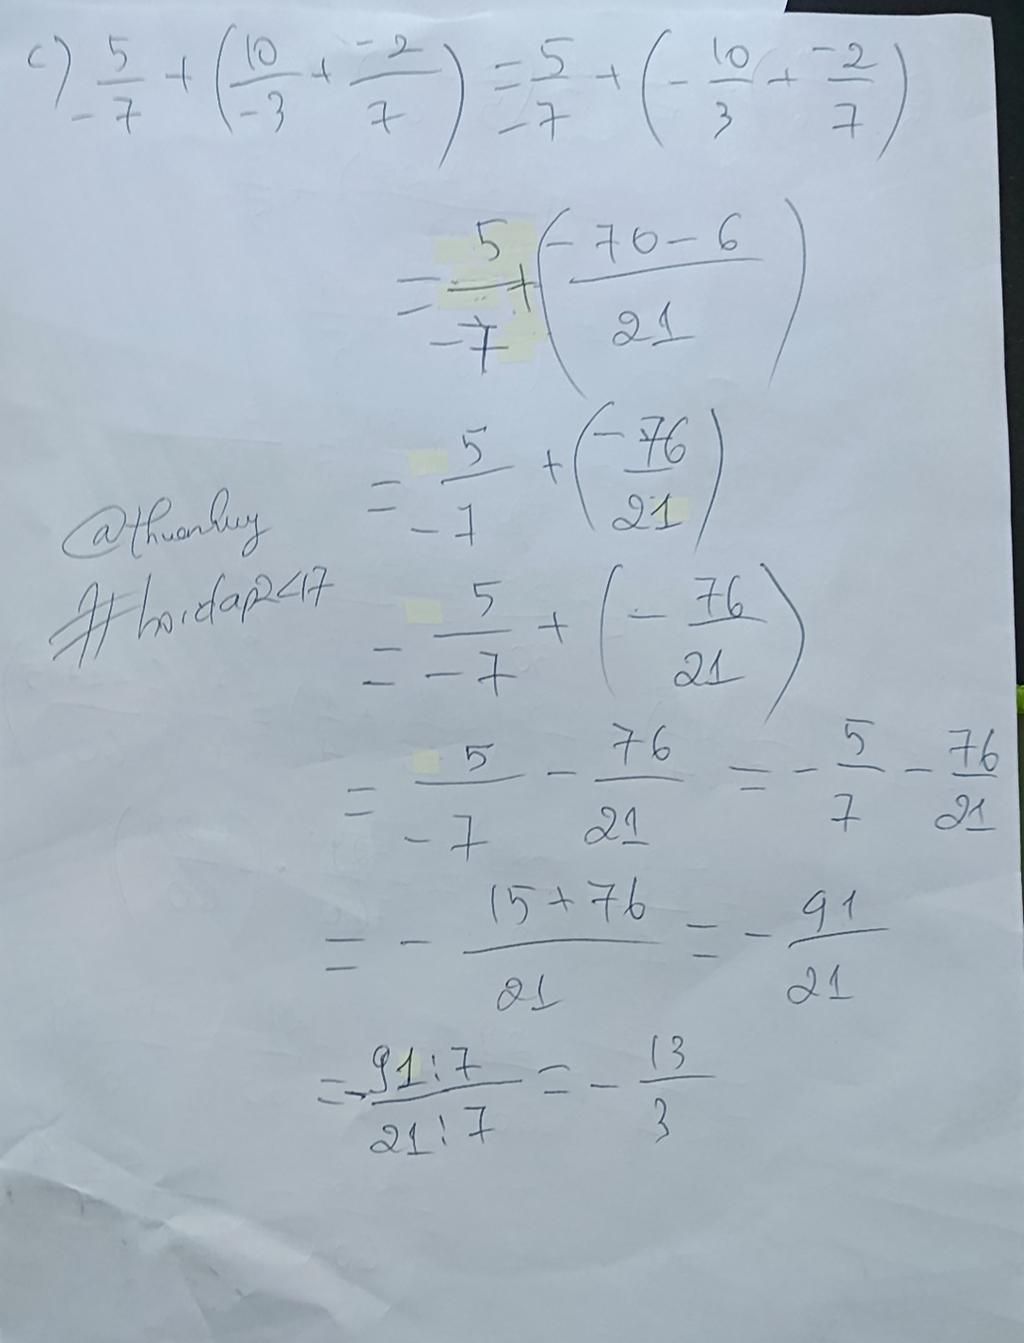 c) 5/-7 + (10/-3 + -2/7) = 5/-7 + (- 10/3 + -2/7)
= 5/-7 + (-70-6/21)
= 5/-7 + (-76/21)
@thuanhuy
#hoidap247
= 5/-7 + (- 76/21)
= 5/-7 - 76/21 = - 5/7 - 76/21
= - 15+76/21 = - 91/21
= - 91:7/21:7 = - 13/3